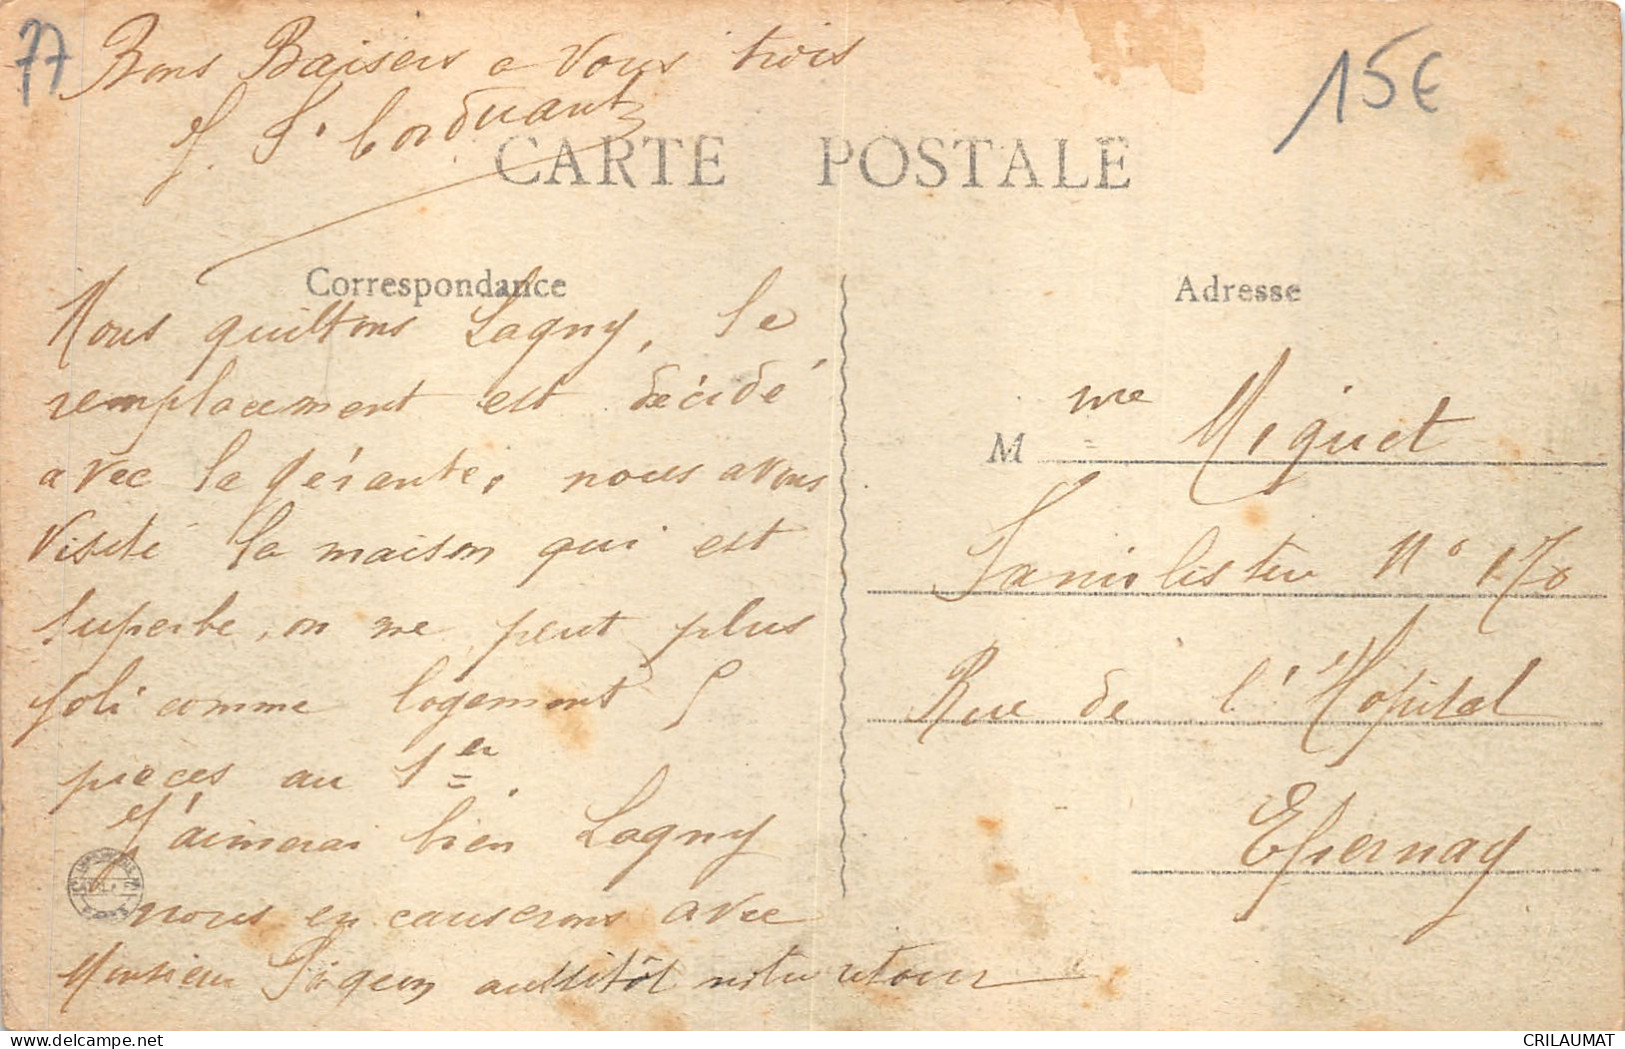 77
Bons Baisers a vous trois
15€
CARTE POSTALE
Correspondance
Nous quittons Lagny, le
remplacement est décidé
avec la gérante, nous avons
visité la maison qui est
superbe, on ne peut plus
joli comme logement 5
pieces au 1er.
J'aimerai bien Lagny
nous en causerons avec
Monsieur aussitôt notre retour
Adresse
Mme Miguet
N° 170
Rue de l'Hopital
Epernay
CRILAUMAT